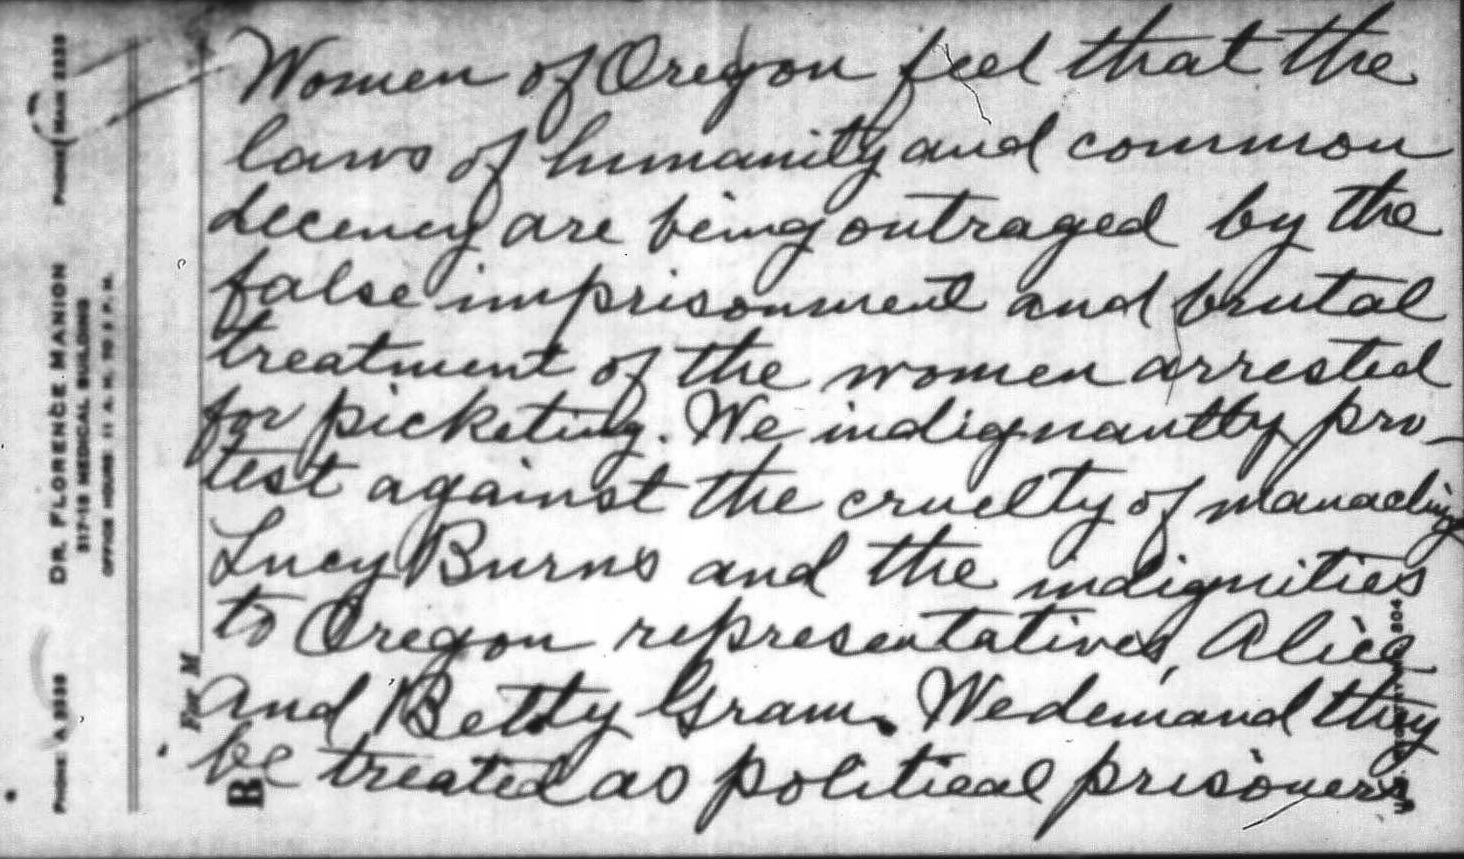 Women of Oregon feel that the
laws of humanity and common
decency are being outraged by the
false imprisonment and brutal
treatment of the women arrested
for picketing. We indignantly pro-
test against the cruelty of manacling
Lucy Burns and the indignities
to Oregon representatives, Alice
and Betty Gram. We demand they
be treated as political prisoners
DR. FLORENCE MANION
317-18 MEDICAL BUILDING
OFFICE HOURS: 11 A. M. TO 5 P. M.
For M